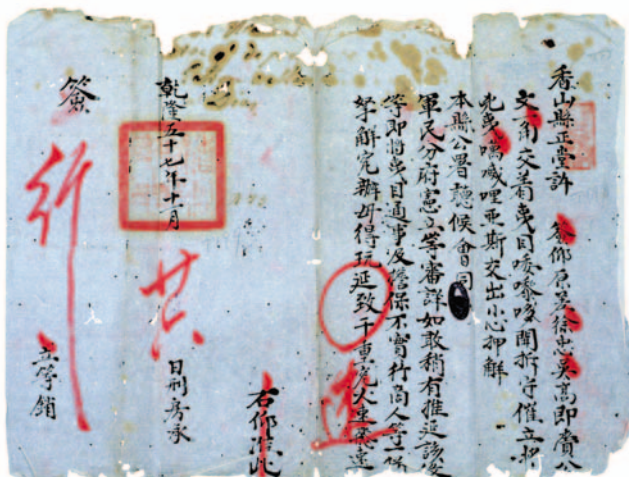 香山縣正堂許 簽仰原差徐忠吳高即賫公
文一角交着夷目嚟哆開拆守催立將
兇夷喊哩亜斯交出小心押解
本縣公署聽候會同
軍民分府憲立等審詳如敢稍有推延該役
等即將夷目通事及擔保不實行商人等一併
拏解究辦毋得玩延致干重究火速
速
右仰准此
乾隆五十七年十一月
廿
日刑房承
簽
行
立等銷